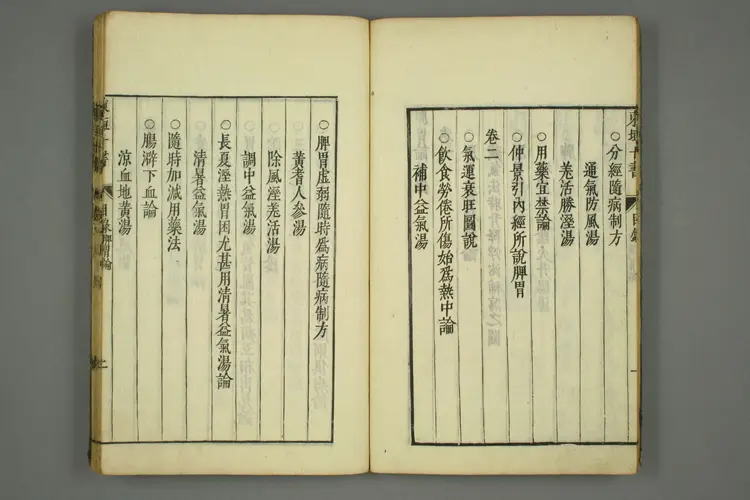 東垣十書
目錄
○分經隨病制方
通氣防風湯
羗活勝溼湯
○用藥宜禁論
○仲景引內經所說脾胃
卷二
○氣運衰旺圖說
○飲食勞倦所傷始爲熱中論
補中益氣湯
○脾胃虛弱隨時爲病隨病制方
黃耆人參湯
除風溼羗活湯
調中益氣湯
○長夏溼熱胃困尤甚用清暑益氣湯論
清暑益氣湯
○隨時加減用藥法
○腸澼下血論
涼血地黃湯
東垣十書
目錄脾胃論